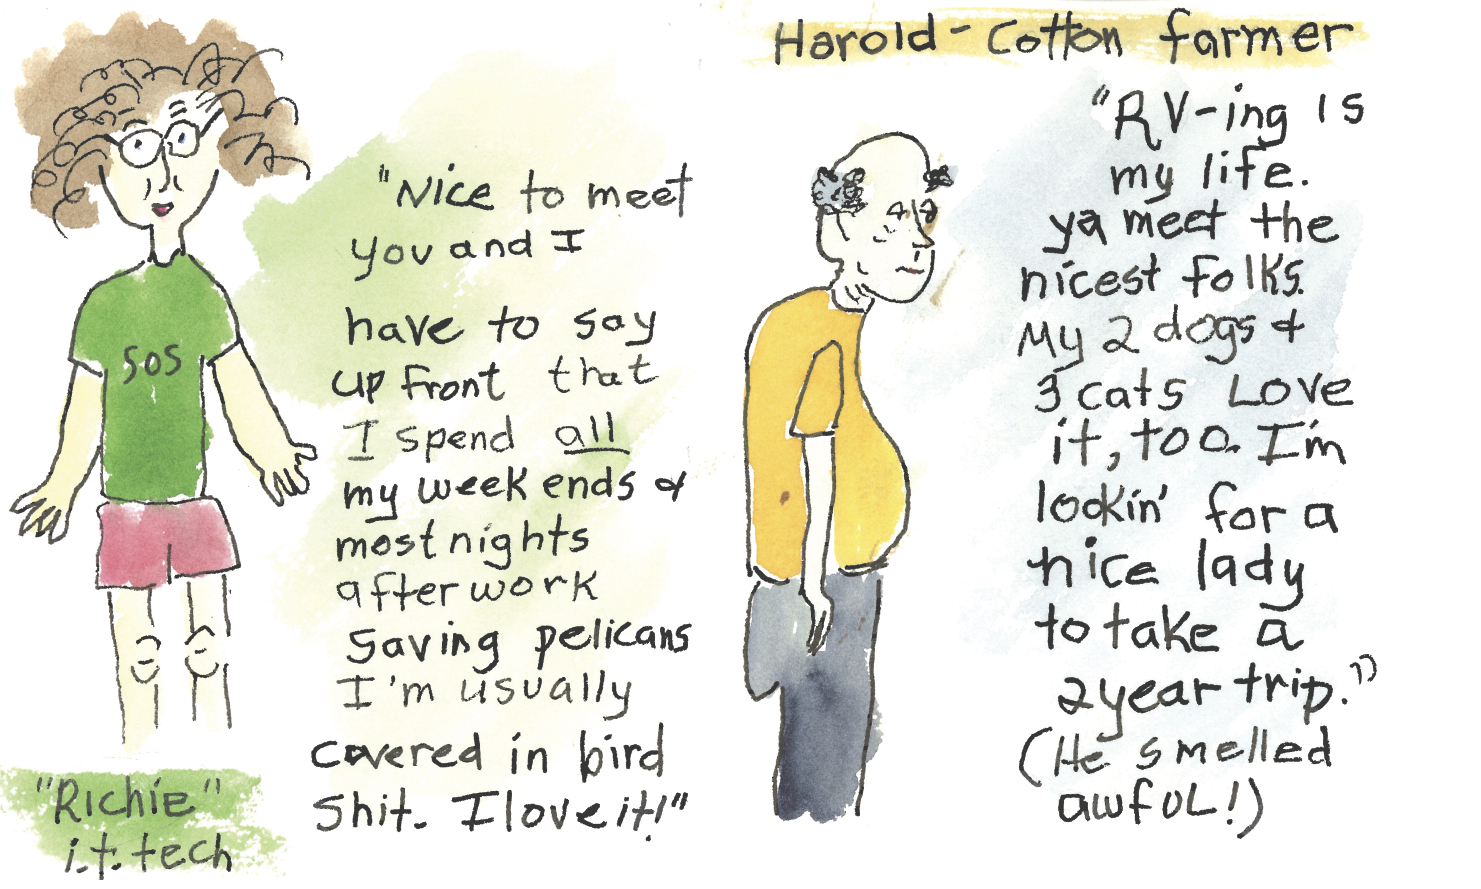 SOS
"Nice to meet
you and I
have to say
up front that
I spend all
my week ends &
most nights
after work
saving pelicans
I'm usually
covered in bird
shit. I love it!"
"Richie"
i.t. tech
Harold - Cotton farmer
"RV-ing is
my life.
ya meet the
nicest folks.
My 2 dogs &
3 cats Love
it, too. I'm
lookin' for a
nice lady
to take a
2 year trip."
(He smelled
awful!)